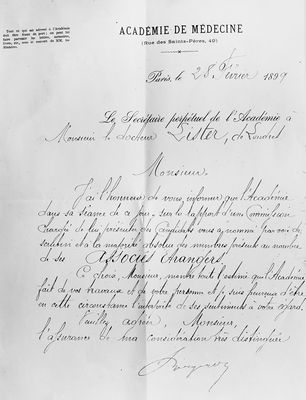 Tout ce qui est adressé à l'Académie
doit être franc de port; on peut lui
faire parvenir les lettres, mémoires,
livres, etc., sous le couvert de MM. les
Ministres.
ACADÉMIE DE MÉDECINE
(Rue des Saints-Pères, 49)
Paris, le 28 février 1899
Le Secrétaire perpétuel de l'Académie à
Monsieur le docteur Lister, de Londres
Monsieur,
J'ai l'honneur de vous informer que l'Académie
dans sa séance de ce jour, sur le rapport d'une Commission
chargée de lui présenter des Candidats vous a nommé par voie de
scrutin et à la majorité absolue des membres présents au nombre
de ses Associés étrangers.
Ce choix, Monsieur, montre toute l'estime que l'Académie
fait de vos travaux et de votre personne et je suis heureux d'être
en cette circonstance l'interprète de ses sentiments à votre égard.
Veuillez agréer, Monsieur,
l'assurance de ma considération très distinguée